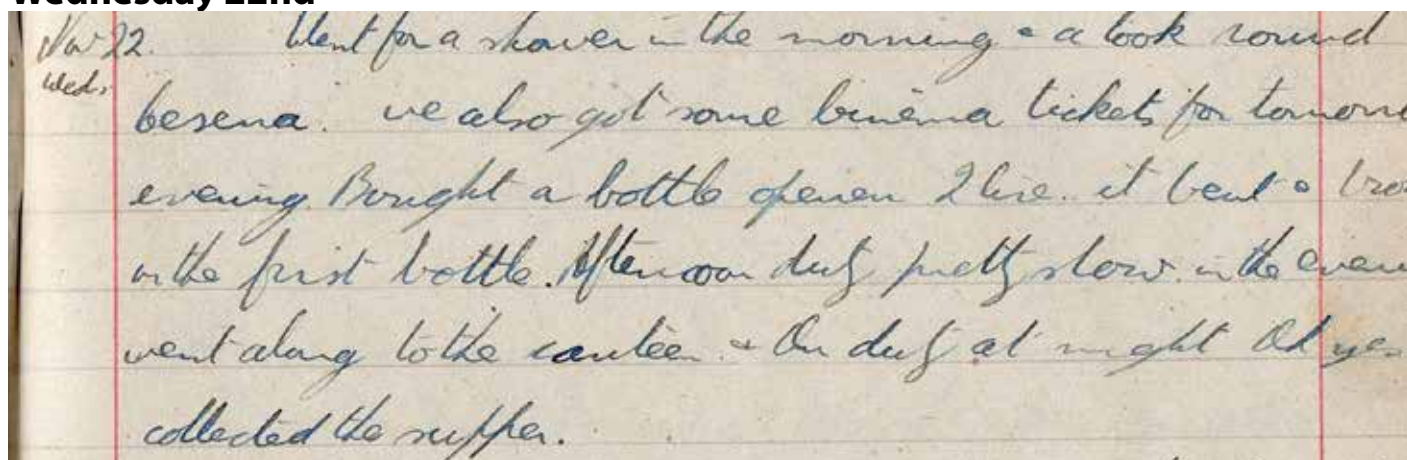 Wednesday 22nd
Nov 22. Went for a shower in the morning & a look round
Weds.
Cesena. We also got some Cinema tickets for tomorro
evening. Bought a bottle opener 2 lire. it bent & bro
on the first bottle. Afternoon duty pretty slow. in the even
went along to the canteen & On duty at night Oh yes
collected the supper.